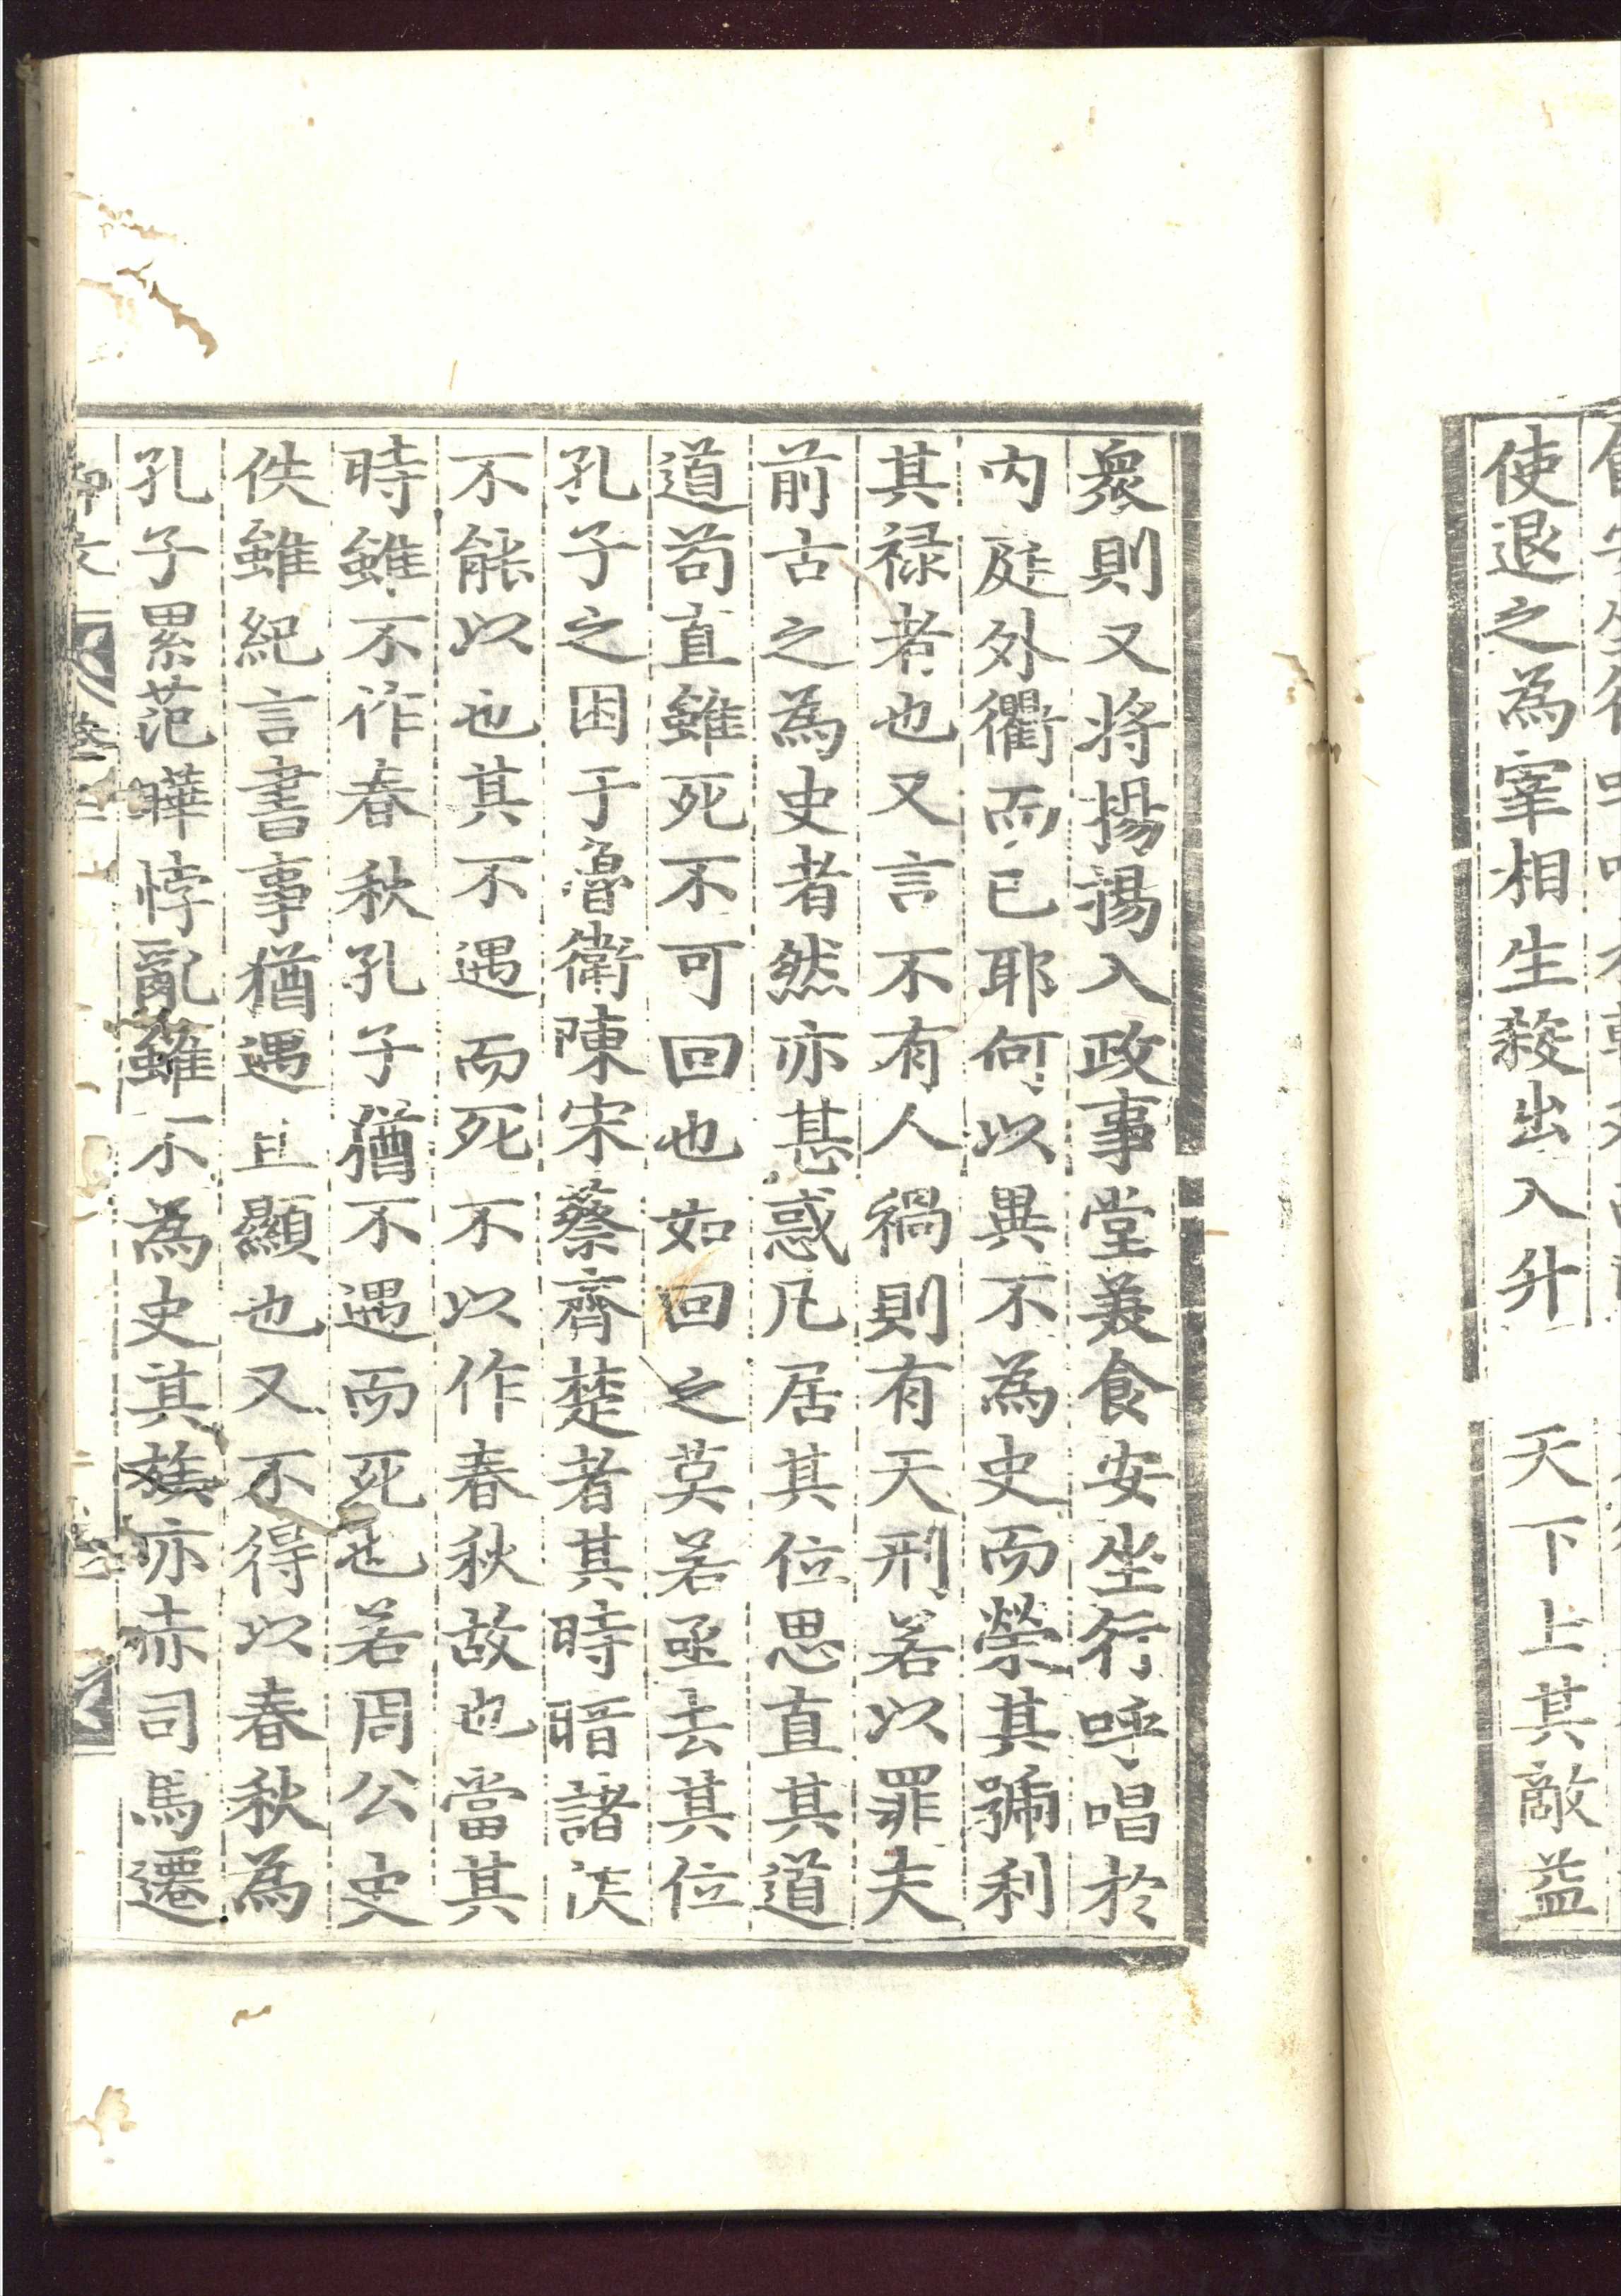 使退之為宰相生殺出入升　天下上其敵益
衆則又將揚揚入政事堂美食安坐行呼唱於
内庭外衢而已耶何以異不為史而榮其號利
其禄者也又言不有人禍則有天刑若以罪夫
前古之為史者然亦甚惑凡居其位思直其道
道苟直雖死不可回也如回之莫若亟去其位
孔子之困于魯衛陳宋蔡齊楚者其時暗諸侯
不能以也其不遇而死不以作春秋故也當其
時雖不作春秋孔子猶不遇而死也若周公史
佚雖紀言書事猶遇且顯也又不得以春秋為
孔子累范曄悖亂雖不為史其族亦赤司馬遷